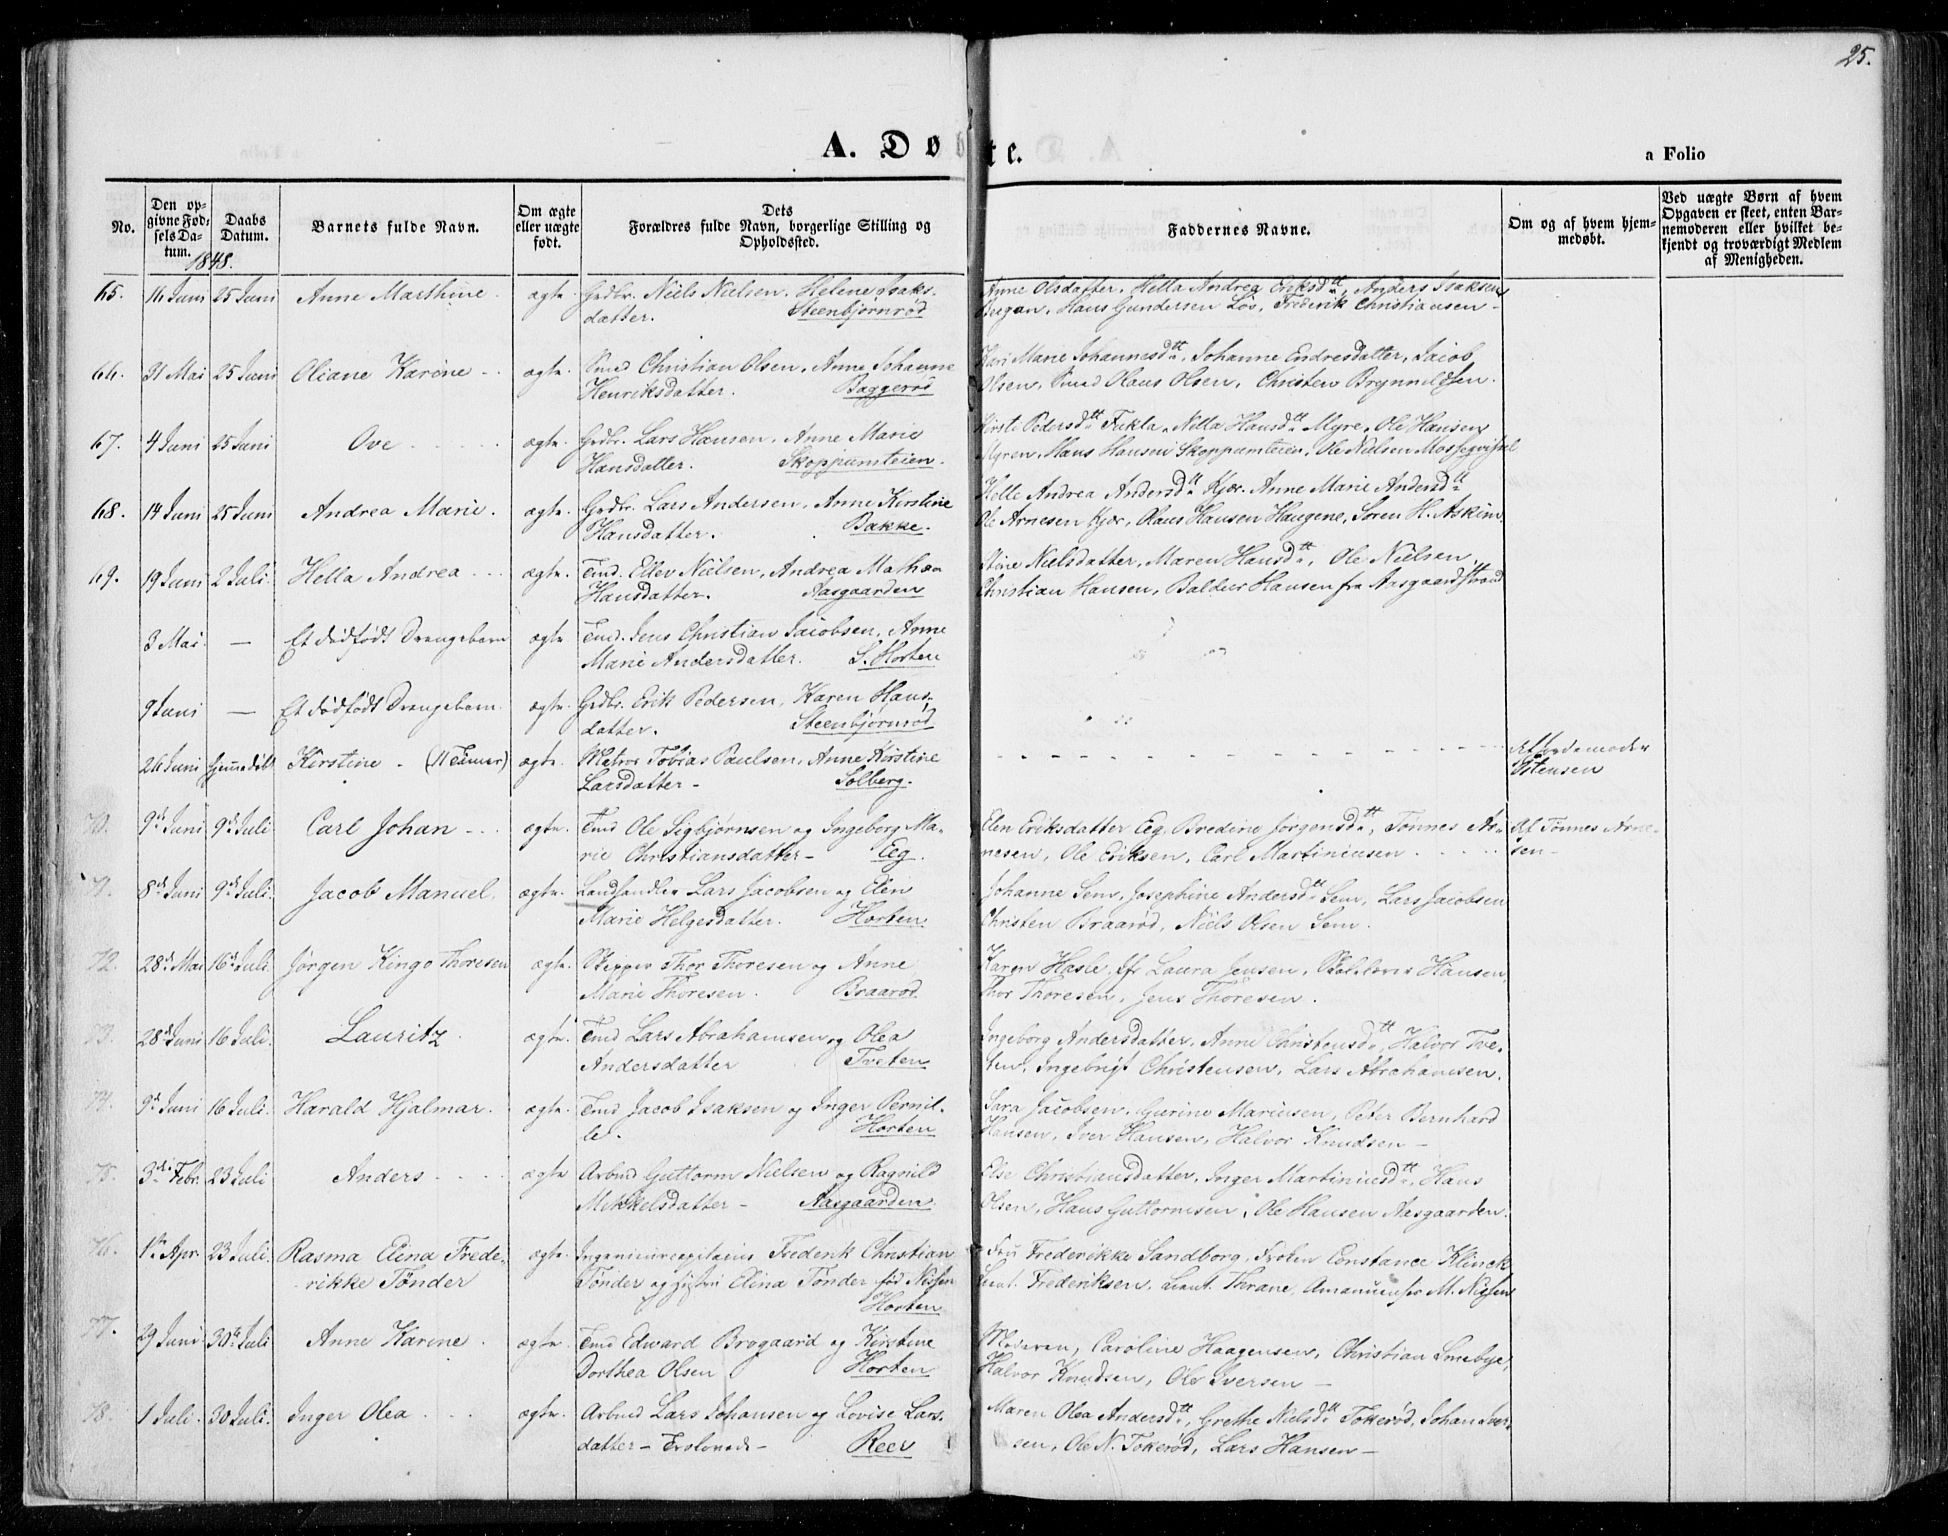 25.
A. Døbte.
a Folio
No.
Den opgivne Fødselsdatum.
Daabs Datum.
Barnets fulde Navn.
Om ægte eller uægte født.
Dets Forældres fulde Navn, borgerlige Stilling og Opholdssted.
Faddernes Navne.
Om og af hvem hjemmedøbt.
Ved uægte Børn af hvem Opgaven er skeet, enten Barnemoderen eller hvilket bekjendt og troværdigt Medlem af Menigheden.
1848.
65. 16 Juni 25 Juni Anne Marthine. ægte. Grdbr. Niels Nielsen. Helene Isaks- Anne Olsdatter, Hella Andrea Eriksdtt, Anders Isaksen
datter. Steenbjørnrød Hans Gundersen Løv, Frederik Christiansen -
66. 31 Mai 25 Juni Oliane Karine - ægte. Smed Christian Olsen, Anne Johanne Kari Marie Johannesdtt, Johanne Endresdatter, Jacob
Henriksdatter. Baggerød Olsen, Smed Olaus Olsen, Christen Brynnildsen.
67. 4 Juni 25 Juni Ove ægte. Grdbr. Lars Hansen, Anne Marie Kirsti Pedersdtt Fukla, Nilla Hansdtt Myre, Ole Hansen
Hansdatter. Skoppumteien. Myren, Hans Hansen Skoppumteien, Ole Nielsen
68. 14 Juni 25 Juni Andrea Marie. ægte. Grdbr. Lars Andersen, Anne Kirstine Helle Andrea Andersdtt Kjær. Anne Marie Andersdtt
Hansdatter. Bakke. Ole Arnesen Kjær, Olaus Hansen Haugene, Søren H. Askim.
69. 19 Juni 2 Juli. Hella Andrea ægte. Tmd. Ellev Nielsen, Andrea Mathea Stine Nielsdatter, Maren Hansdtt, Ole Nielsen,
Hansdatter. Aasgaarden Christian Hansen, Balder Hansen fra Aasgaardstrand
3 Mai. — Et dødfødt Drengebarn ægte Tmd. Jens Christian Jacobsen, Anne
Marie Andersdatter. S. Horten
9 Juni — Et dødfødt Drengebarn. ægte. Grdbr. Erik Pedersen, Karen Hans-
datter. Steenbjørnrød
26 Juni hjemmedøbt Kirstine - (11 Timer) ægte. Matros Tobias Paulsen, Anne Kirstine Af Jordemoder
Larsdatter - Solberg. Ostensen
70. 9de Juni 9de Juli Carl Johan - ægte. Tmd Ole Sigbjørnsen og Ingeborg Ma- Elen Eriksdatter Eeg, Bredine Jørgensdtt, Tønnes Ar- Af Tønnes Arne-
rie Christiansdatter - Eeg. nesen, Ole Eriksen, Carl Martiniusen sen -
71. 8de Juni 9de Juli. Jacob Manuel. ægte. Landhandler Lars Jacobsen og Elen Johanne Sem, Josephine Andersdtt Sem, Lars Jacobsen
Marie Helgesdatter. Horten. Christen Braarød, Niels Olsen Sem.
72. 28de Mai 16de Juli. Jørgen Kingo Thoresen ægte. Skipper Thor Thoresen og Anne Karen Hasle, Jfr Laura Jensen, Hansen,
Marie Thoresen. Braarød. Thor Thoresen, Jens Thoresen.
73. 28de Juni 16 Juli. Lauritz ægte. Tmd Lars Abrahamsen og Olea Ingeborg Andersdatter, Anne Christensdtt, Halvor Tve-
Andersdatter Tveten ten, Ingebrigt Christensen, Lars Abrahamsen.
74. 9de Juni 16 Juli. Harald Hjalmar. ægte. Tmd Jacob Isaksen og Inger Pernil- Sara Jacobsen, Gurine Mariusen, Peter Bernhard
le. Horten Hansen, Iver Hansen, Halvor Knudsen -
75. 3die Febr. 23 Juli Anders ægte Arbmd Guttorm Nielsen og Ragnild Else Christiansdatter, Inger Martiniusdtt, Hans
Mikkelsdatter - Aasgaarden Olsen, Hans Guttormsen, Ole Hansen Aasgaarden.
76. 1ste Apr. 23 Juli. Rasma Elina Frede- ægte. Ingenieurcapitain Frederik Christian Fru Frederikke Sandborg, Frøken Constance Klinck
rikke Tønder Tønder og Hustru Elina Tønder fød Nissen Lieut. Frederiksen, Lieut. Thrane, Amanuensis M. Nissen
Horten
77. 29 Juni 30te Juli Anne Karine. ægte. Tmd Edward Brogaard og Kirstine Moderen, Caroline Haagensen, Christian Smebye,
Dorthea Olsen Horten Halvor Knudsen, Ole Iversen -
78. 1 Juli. 30 Juli. Inger Olea ægte. Arbmd Lars Johansen og Lovise Lars- Maren Olea Andersdtt, Grethe Nielsdtt Tokerød, Johan Iver-
datter - Reer sen, Ole N. Tokerød, Lars Hansen -